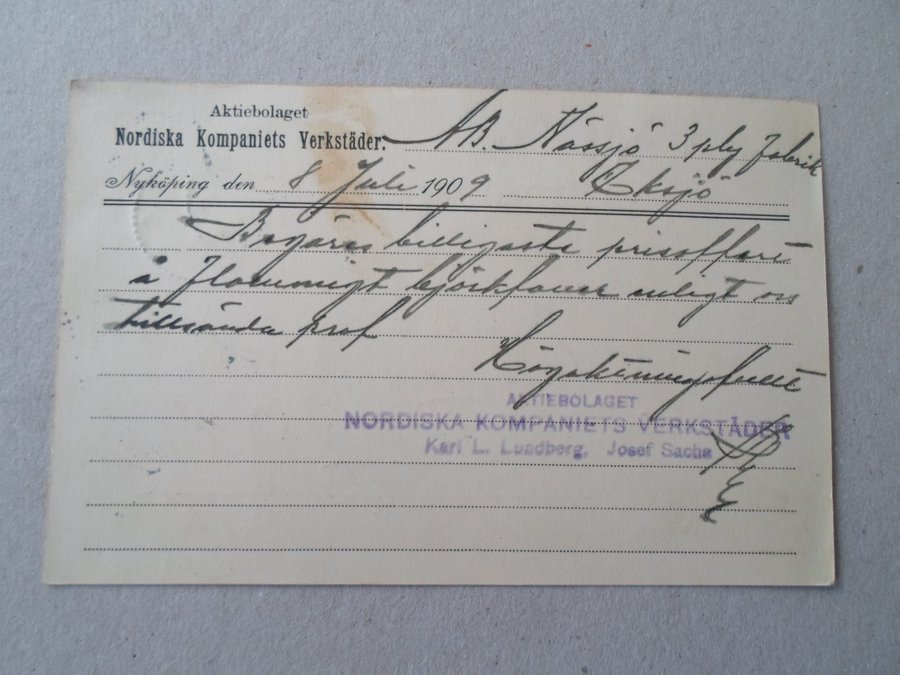 Aktiebolaget
Nordiska Kompaniets Verkstäder. AB. Nässjö 3 ply Fabrik
Nyköping den 8 Juli 1909 Eksjö
Begäres billigaste prisoffert
å Flammigt björkfaner enligt oss
tillsända prof
Högaktningsfullt
AKTIEBOLAGET
NORDISKA KOMPANIETS VERKSTÄDER
Karl L. Lundberg. Josef Sachs